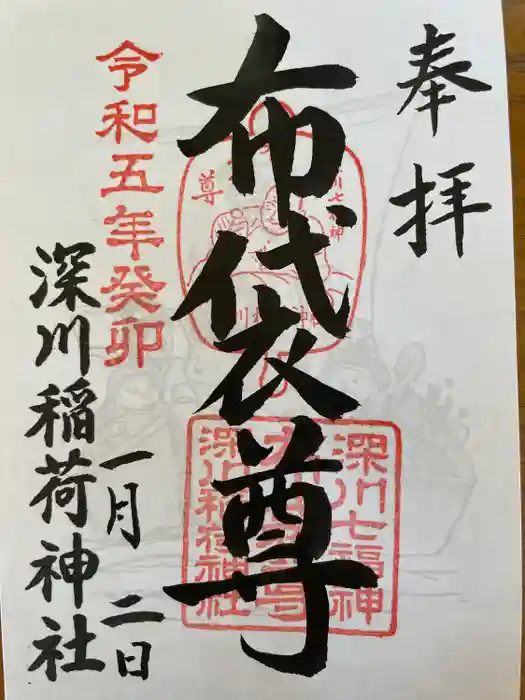 奉拝
布袋尊
令和五年癸卯
一月二日
深川稲荷神社
尊
川七福神
深川七福神
深川稲荷神社